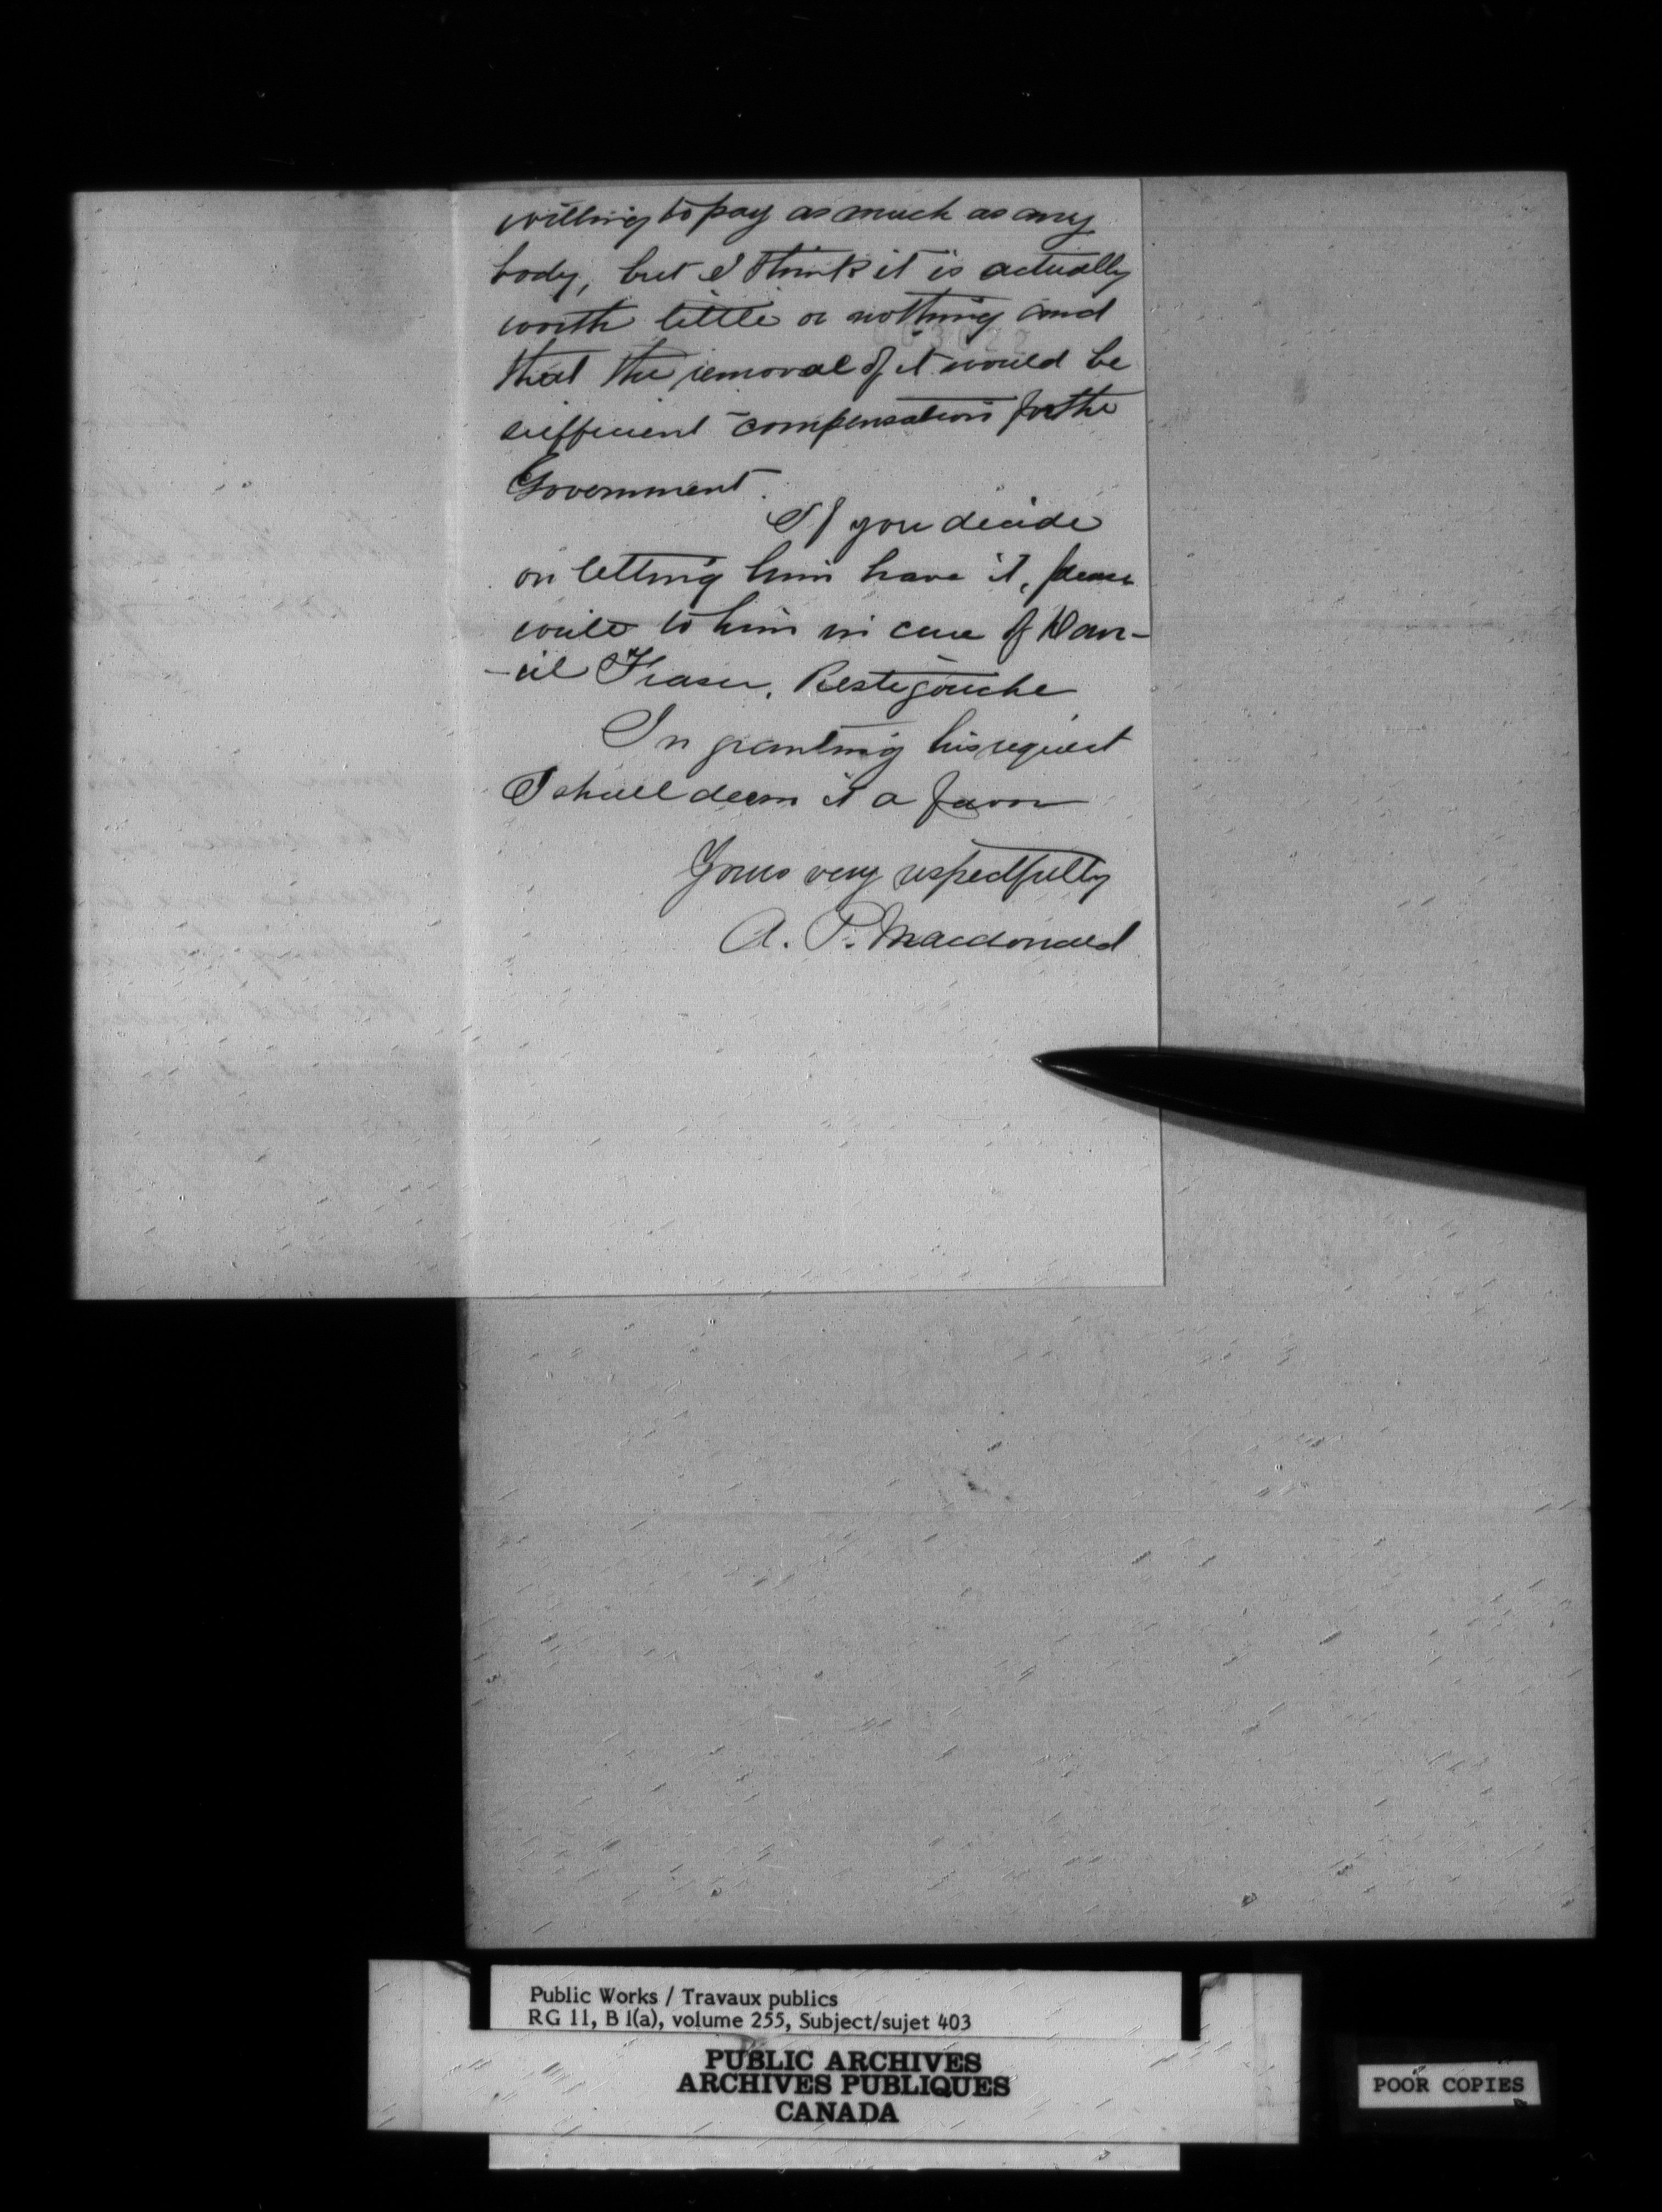 willing to pay as much as any
body, but I think it is actually
worth little or nothing and
that the removal of it would be
sufficient compensation for the
Government.
If you decide
on letting him have it, please
write to him in care of Dan-
-iel Fraser, Restigouche
In granting his request
I shall deem it a favor
Yours very respectfully
A. P. Macdonald
Public Works / Travaux publics
RG 11, B 1(a), volume 255, Subject/sujet 403
PUBLIC ARCHIVES
ARCHIVES PUBLIQUES
CANADA
POOR COPIES